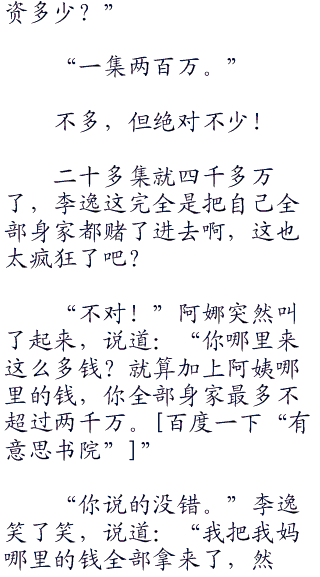 资多少？”
“一集两百万。”
不多，但绝对不少！
二十多集就四千多万
了，李逸这完全是把自己全
部身家都赌了进去啊，这也
太疯狂了吧？
“不对！”阿娜突然叫
了起来，说道：“你哪里来
这么多钱？就算加上阿姨哪
里的钱，你全部身家最多不
超过两千万。[百度一下“有
意思书院”]”
“你说的没错。”李逸
笑了笑，说道：“我把我妈
哪里的钱全部拿来了，然